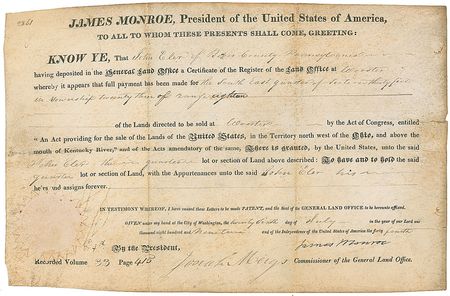 2361
JAMES MONROE, President of the United States of America,
TO ALL TO WHOM THESE PRESENTS SHALL COME, GREETING:
KNOW YE, That John Eler of County Pennsylvania
having deposited in the General Land Office a Certificate of the Register of the Land Office at Wooster
whereby it appears that full payment has been made for the South East quarter of Section thirty four
in township twenty three of range eighteen
of the Lands directed to be sold at Wooster by the Act of Congress, entitled
“An Act providing for the sale of the Lands of the United States, in the Territory north west of the Ohio, and above
the mouth of Kentucky River,” and of the Acts amendatory of the same, There is granted, by the United States, unto the said
John Eler the quarter lot or section of Land above described: To have and to hold the said
quarter lot or section of Land, with the Appurtenances unto the said John Eler his
heirs and assigns forever.
IN TESTIMONY WHEREOF, I have caused these Letters to be made PATENT, and the Seal of the GENERAL LAND OFFICE to be hereunto affixed.
GIVEN under my hand at the City of Washington, the twenty sixth day of July in the year of our Lord one
thousand eight hundred and Nineteen and of the Independence of the United States of America the forty fourth
By the President, James Monroe
Josiah Meigs Commissioner of the General Land Office.
Recorded Volume 33 Page 415